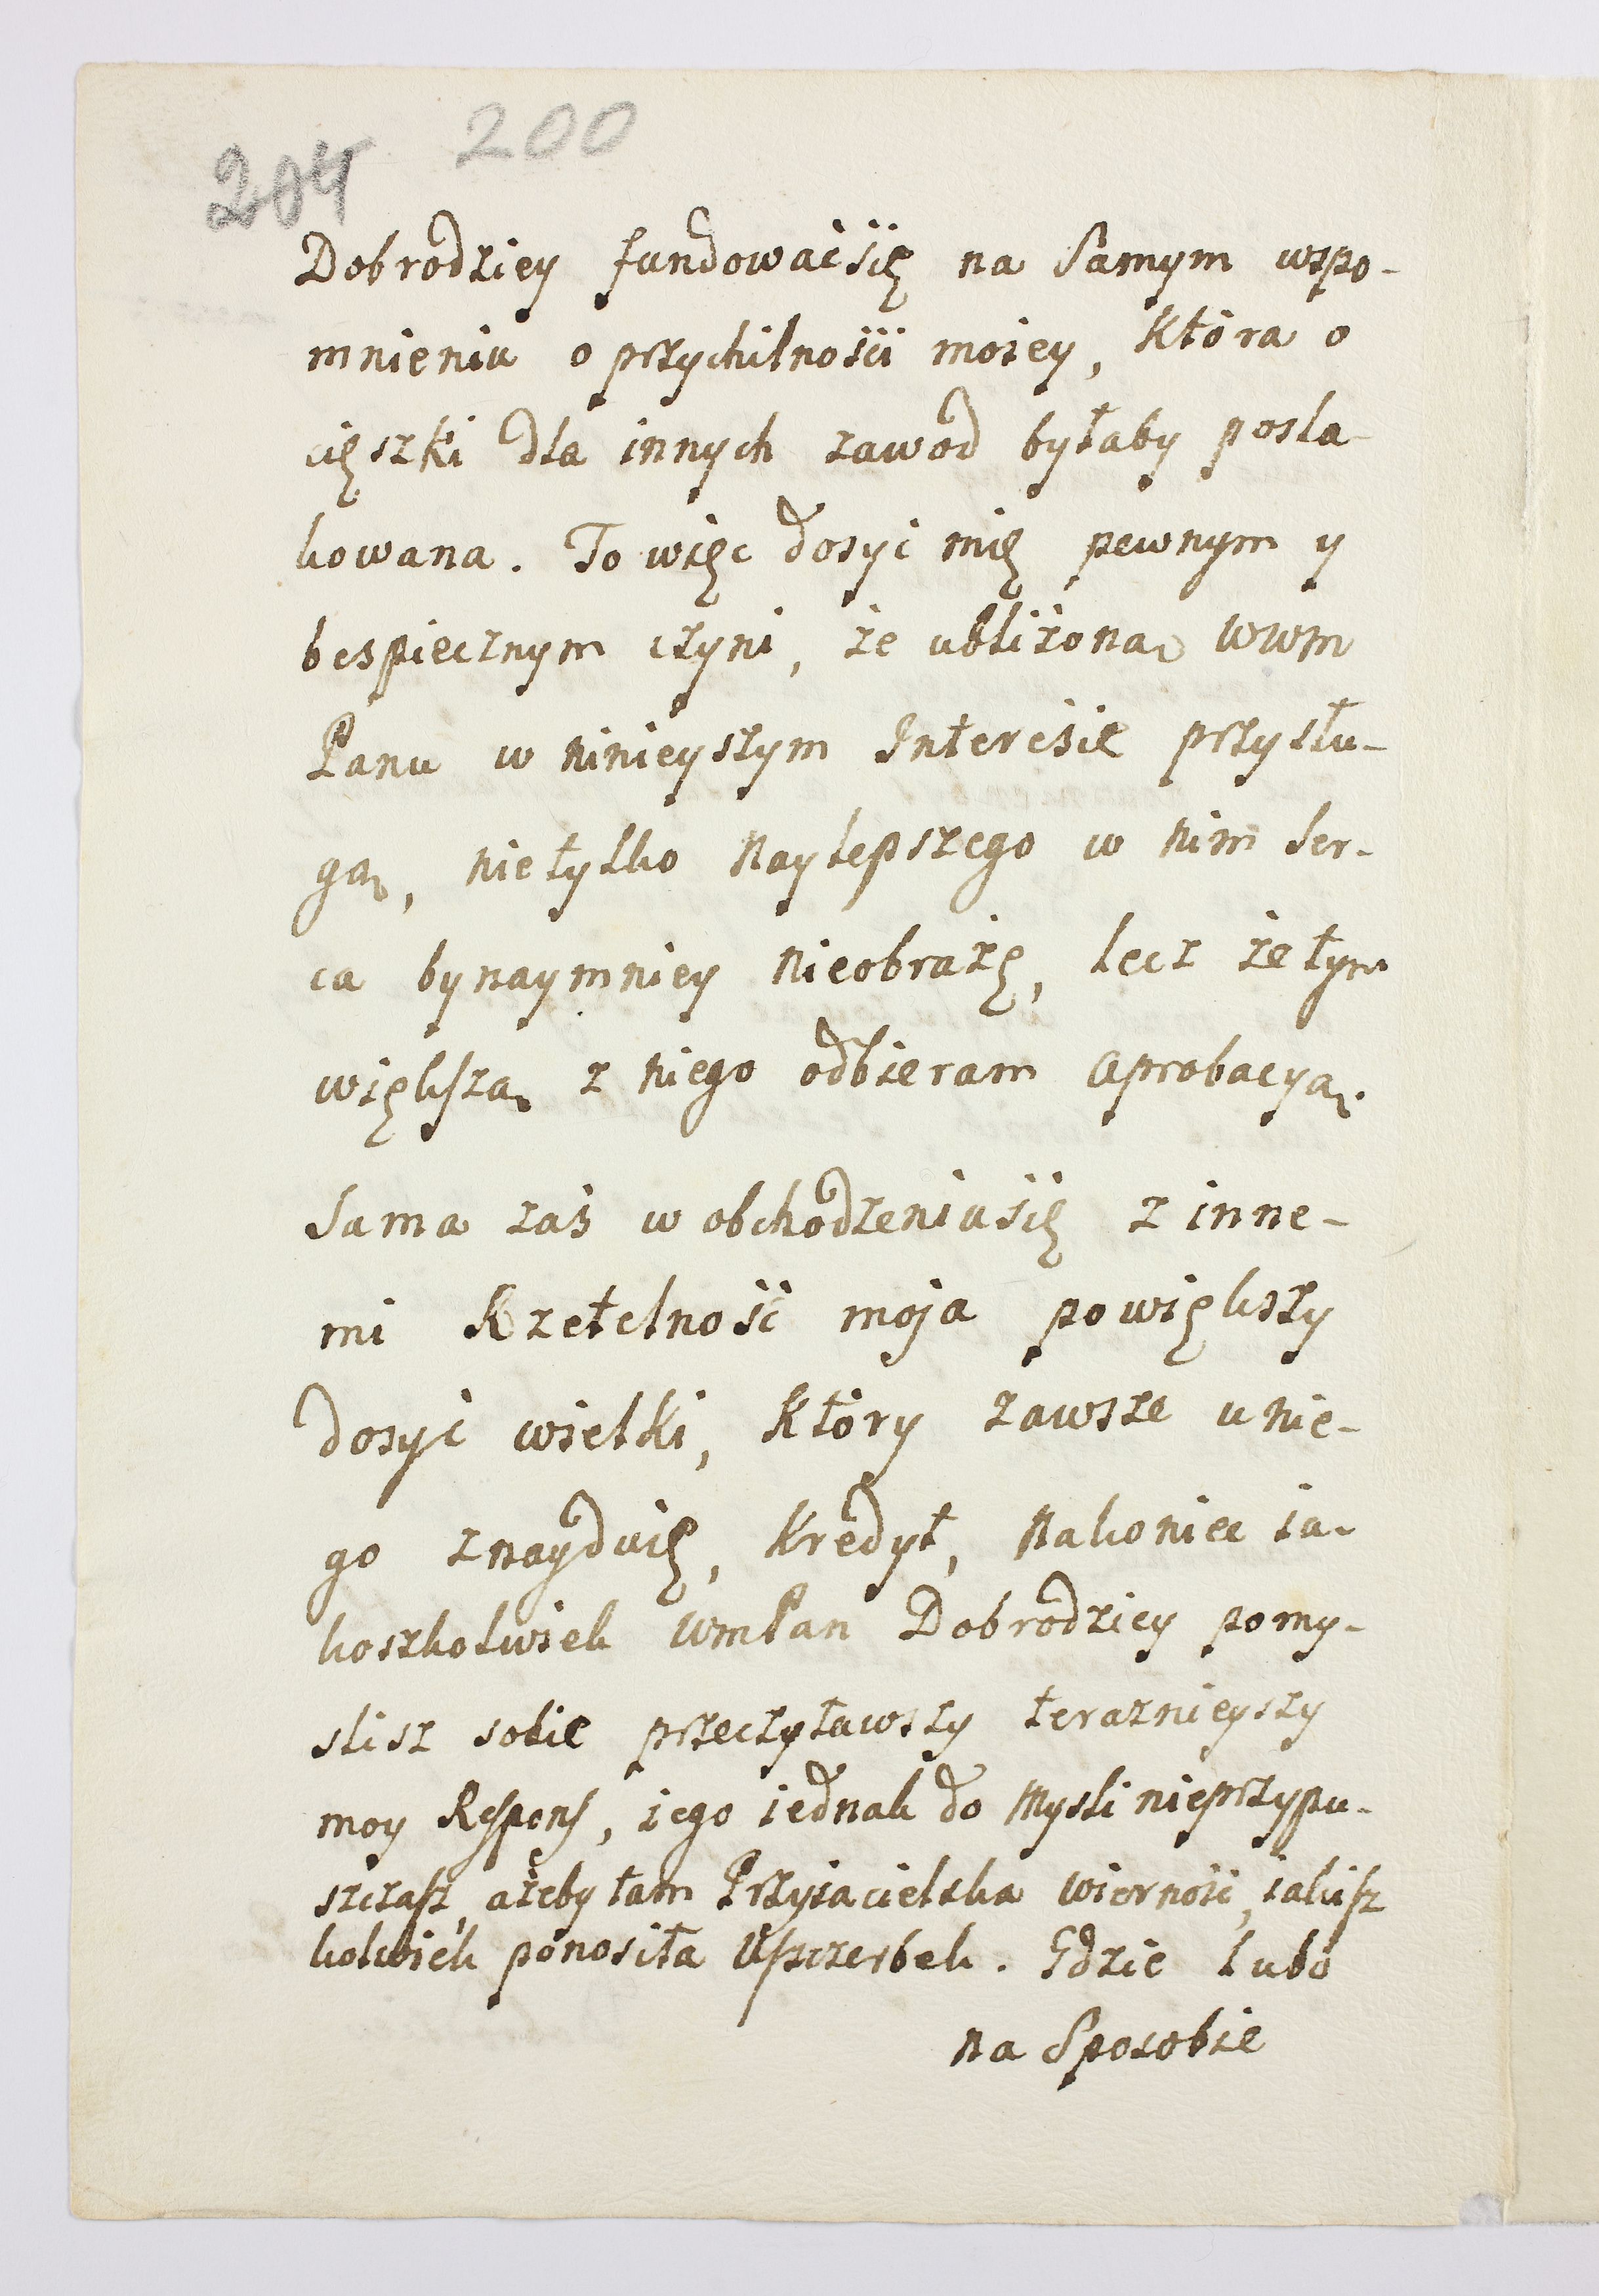 204 200
Dobrodziey fundować się na Samym wspo-
mnieniu o przychilności moiey, Która o
cięszki dla innych zawod byłaby posla-
kowana. To więc dosyć mię pewnym y
bespiecznym czyni, że ubliżoną WWM
Panu w ninieyszym Interesie przysłu-
gą, nietylko Naylepszego w nim Ser-
ca bynaymniey nieobrażę, lecz że tym
większą z niego odbieram Aprobacyą.
Sama zaś w obchodzeniu się z inne-
mi Rzetelność moja powiększy
dosyć wielki, Który zawsze u nie-
go znayduię, Kredyt, Nakoniec ia-
koszkolwiek WmPan Dobrodziey pomy-
slisz sobie przeczytawszy teraznieyszy
moy Respons, iego iednak do Mysli nieprzypu-
szczasz, ażeby tam Przyiacielska wierność, iakisz
kolwiek ponosiła Uszczerbek. Gdzie lubo
na Sposobie